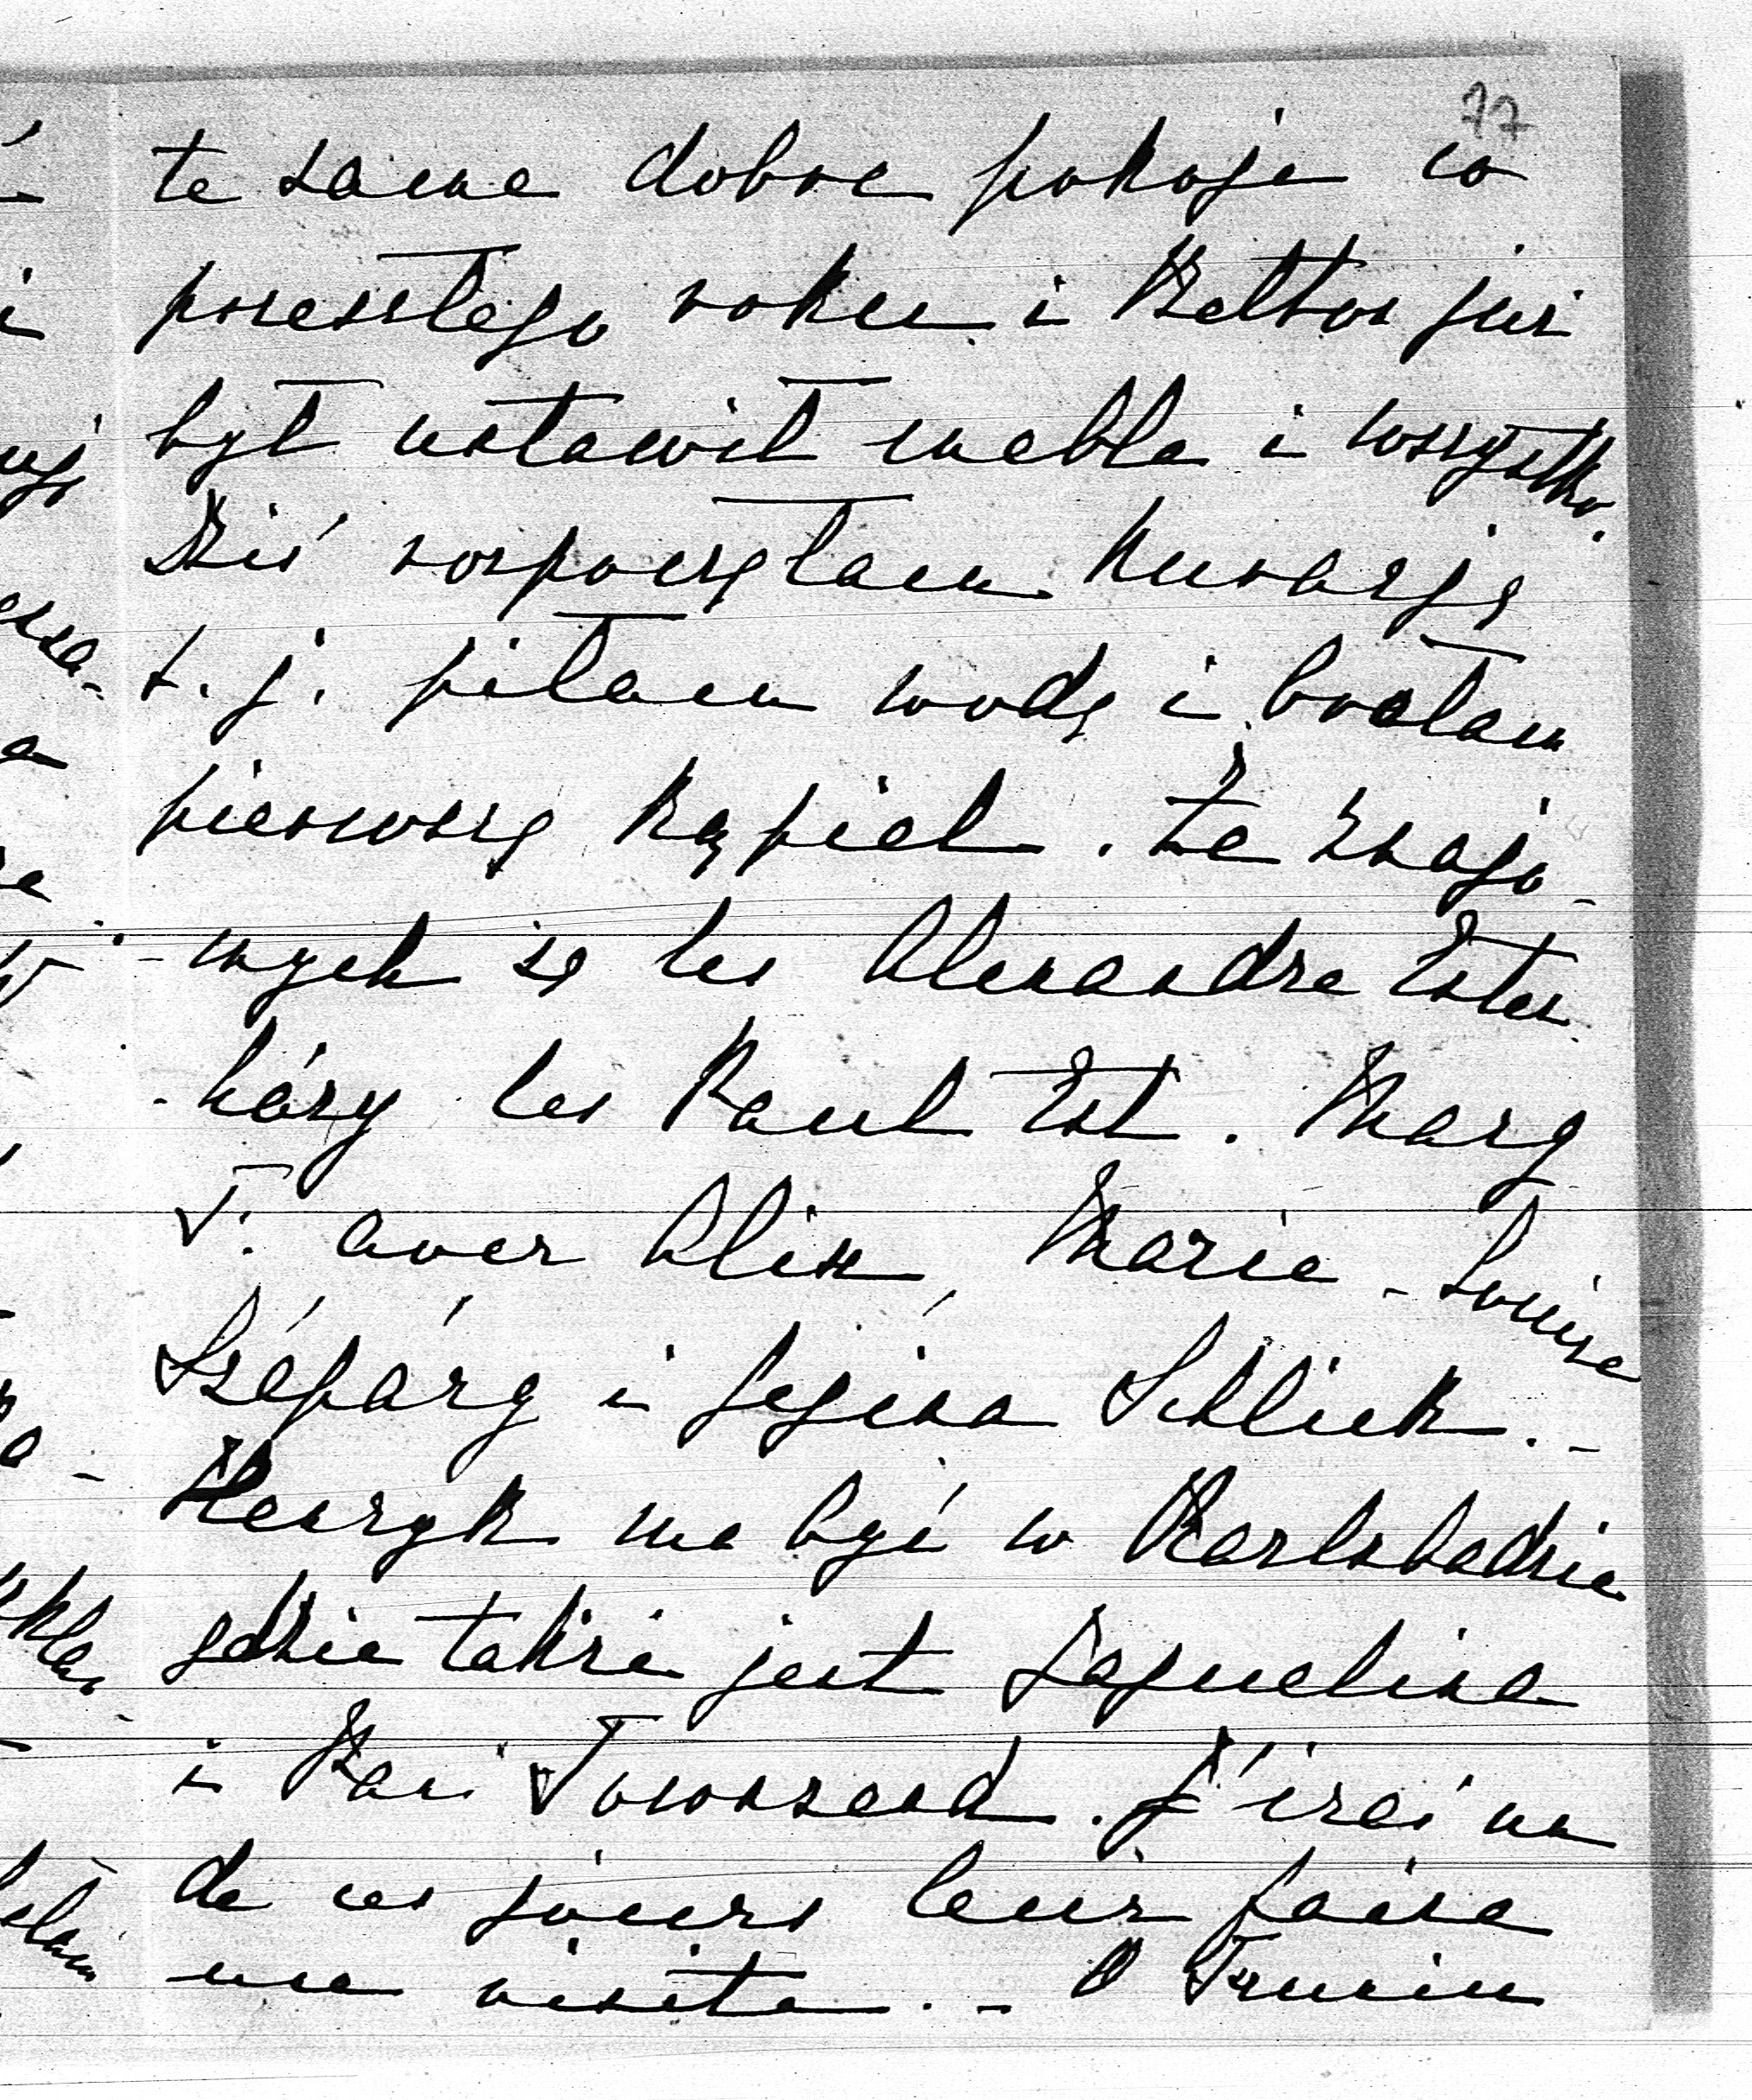 77
te same dobre pokoje co
przeszłego roku i Kelbor już
był ustawił meble i wszystko.
Dziś rozpoczęłam kurację
t. j. piłam wodę i brałam
pierwszą kąpiel. Ze znajo-
-mych są les Alexandre Ester
-házy les Paul Est. Marg
T. avec Alix, Marie-Louise
Szápáry i Jegina Schlick. -
Henryk ma być w Karlsbadzie
gdzie także jest Jaquelina
i Kari Townsend. J'irai un
de ces jours leur faire
une visite. - O